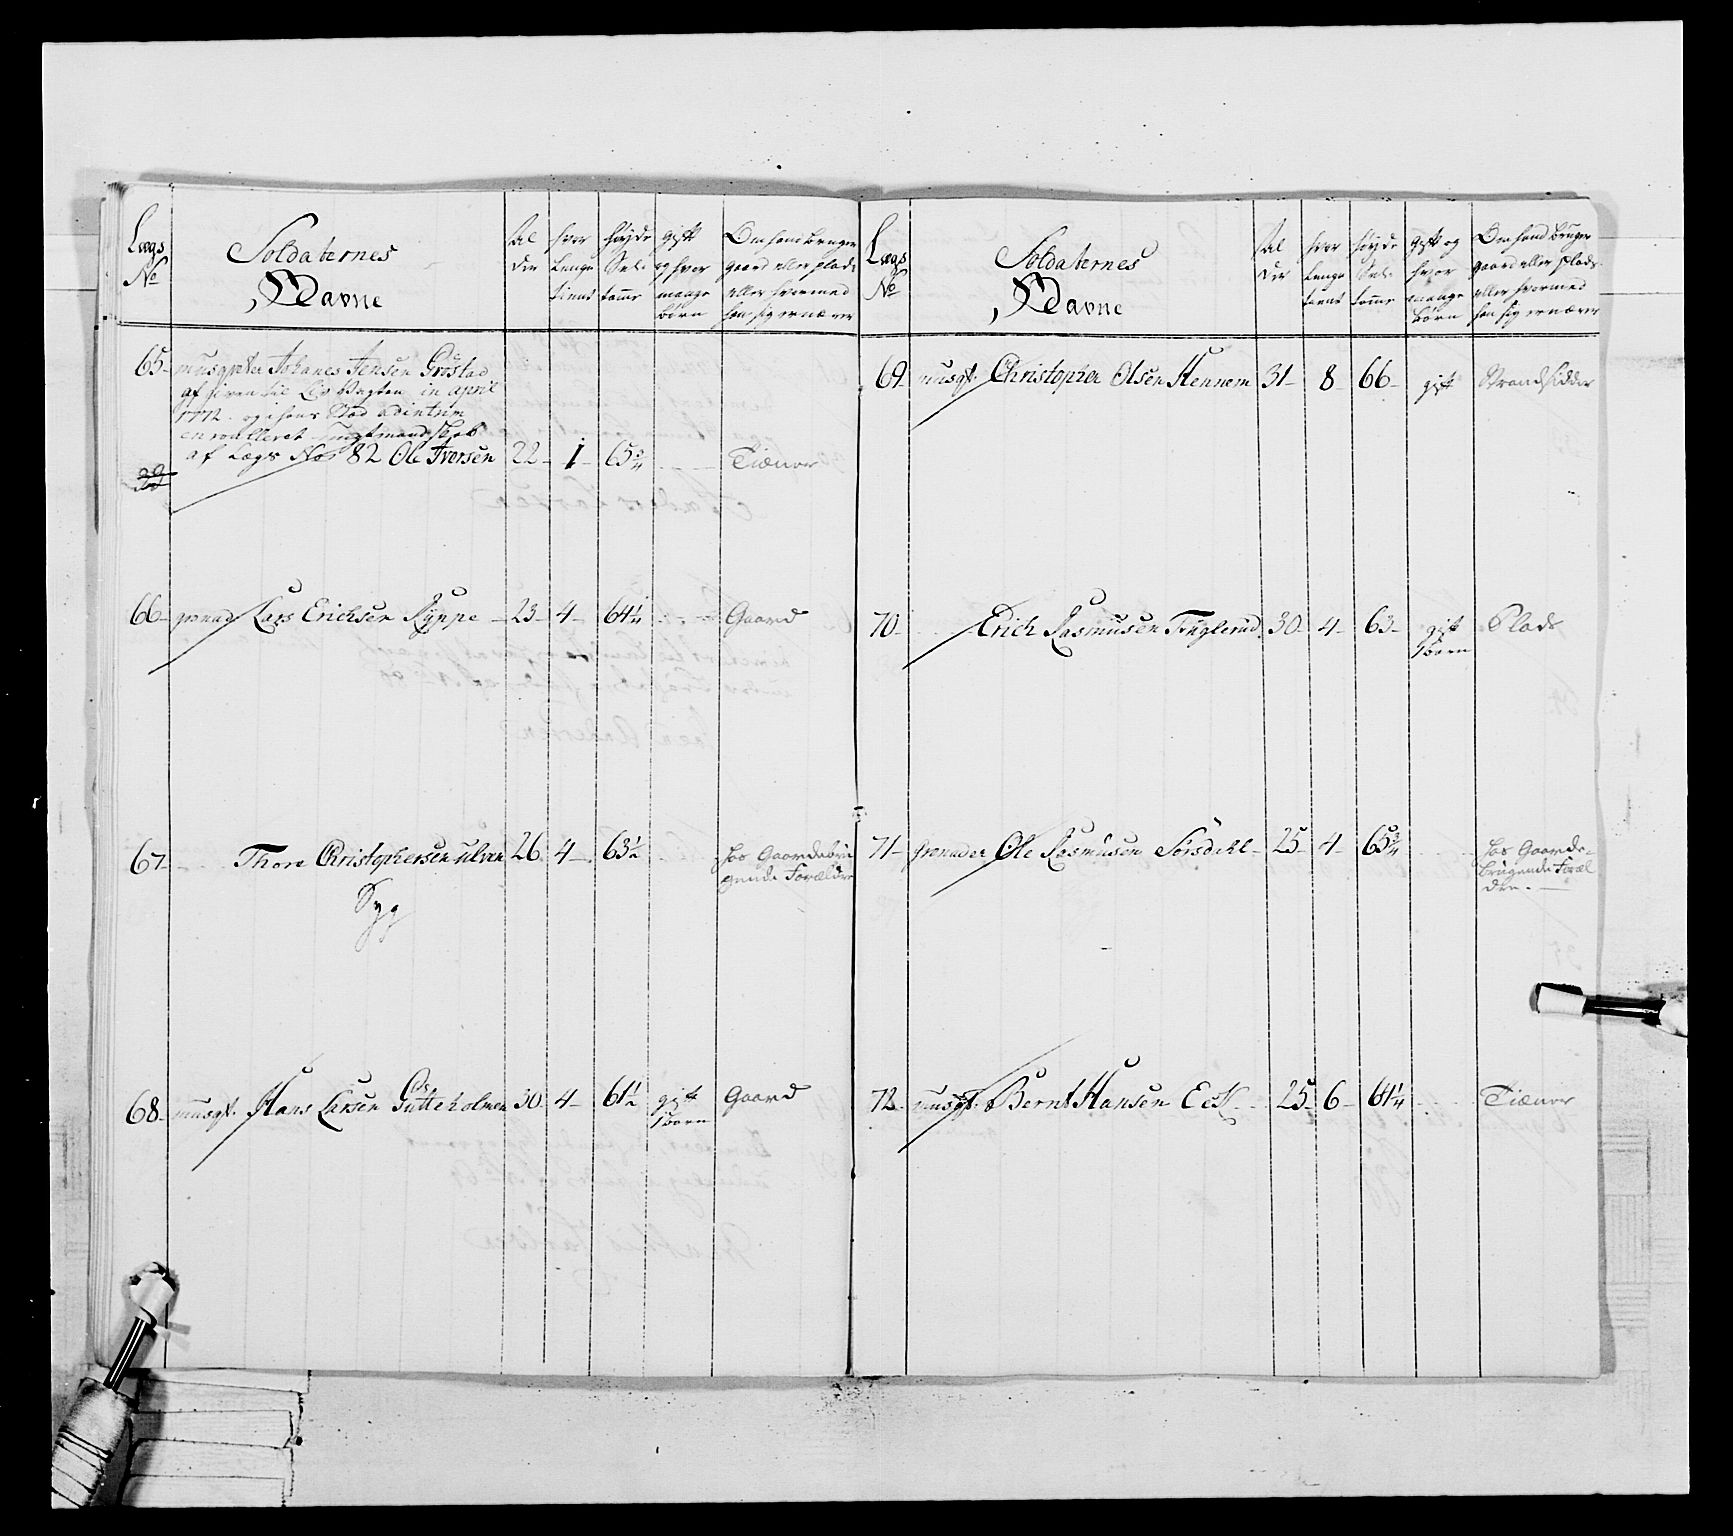 Lægs No
Soldaternes Navne
Al der
hvor Lenge tient
høyde Sel. tomme
gift og hvor mange børn
Om hand bruger gaard eller plads eller hvormed han sig ernærer
65 musqpter Johanes Jensen Gröstad
af given til Liv Vagten in april
1772. og i hans Stad ad intrim
enroulleret
af Lægs No 82 Ole Iversen 22 1 65 3/4 Tiener
66 grenad Lars Erichsen Kyppe 23 4 64 1/4 Gaard
67 Thore Christophersen Ulven 26 4 63 1/2 hos Gaardebru
gende Forældre
Syg
68 musqt. Hans Larsen Gutteholmen 30 4 61 1/2 gift Gaard
1 børn
Lægs No
Soldaternes Navne
Al der
hvor Lenge tient
høyde Sel. tomme
gift og hvor mange børn
Om hand bruger gaard eller plads eller hvormed han sig ernærer
69 musqt. Christopher Olsen Hennem 31 8 66 gift Strandsidder
70 Erich Rasmusen Tinglerud 30 4 63 gift Plads
1 børn
71 grenader Ole Rasmusen Sörsdahl 25 4 65 3/4 hos Gaarde-
brugende Foræl
dre.
72 musqt. Bernt Hansen Eek 25 6 64 1/4 Tiener